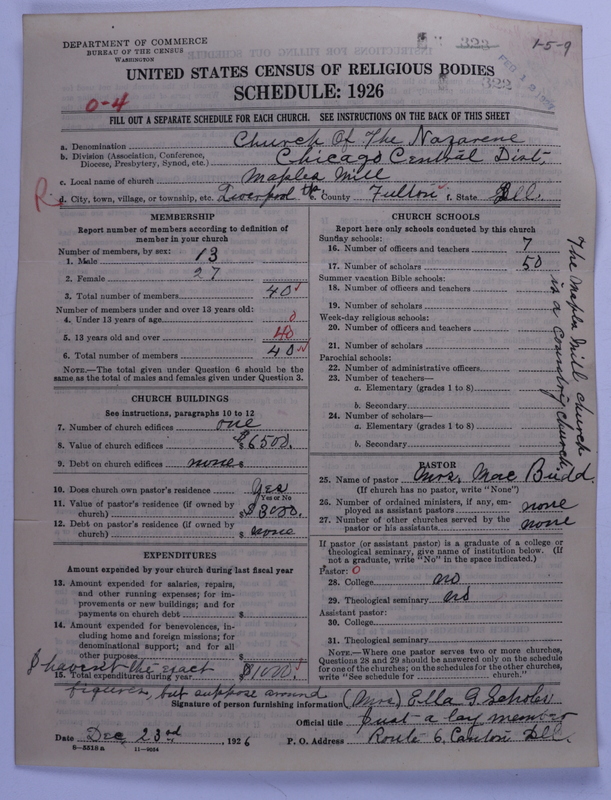 DEPARTMENT OF COMMERCE
BUREAU OF THE CENSUS
WASHINGTON
323
322
1-5-9
UNITED STATES CENSUS OF RELIGIOUS BODIES
SCHEDULE: 1926
0-4
FILL OUT A SEPARATE SCHEDULE FOR EACH CHURCH. SEE INSTRUCTIONS ON THE BACK OF THIS SHEET
a. Denomination Church Of The Nazarene
b. Division (Association, Conference, Diocese, Presbytery, Synod, etc.) Chicago Central Dist.
c. Local name of church Maples Mill
R
d. City, town, village, or township, etc. Liverpool tp e. County Fulton f. State Ill.
MEMBERSHIP
Report number of members according to definition of
member in your church
Number of members, by sex:
1. Male 13
2. Female 27
3. Total number of members 40
Number of members under and over 13 years old:
4. Under 13 years of age 0
5. 13 years old and over 40
6. Total number of members 40
NOTE.—The total given under Question 6 should be
the same as the total of males and females given under Question 3.
CHURCH BUILDINGS
See instructions, paragraphs 10 to 12
7. Number of church edifices one
8. Value of church edifices $6500.
9. Debt on church edifices none $
10. Does church own pastor's residence Yes
Yes or No
11. Value of pastor's residence (if owned by
church) $3000.
12. Debt on pastor's residence (if owned by
church) $ none
EXPENDITURES
Amount expended by your church during last fiscal year
13. Amount expended for salaries, repairs,
and other running expenses; for im-
provements or new buildings; and for
payments on church debt $
14. Amount expended for benevolences, in-
cluding home and foreign missions; for
denominational support; and for all
other purposes
I haven't the exact
15. Total expenditures during year $1000.
figures, but suppose around
CHURCH SCHOOLS
Report here only schools conducted by this church
Sunday schools:
16. Number of officers and teachers 7
17. Number of scholars 50
Summer vacation Bible schools:
18. Number of officers and teachers
19. Number of scholars
Week-day religious schools:
20. Number of officers and teachers
21. Number of scholars
Parochial schools:
22. Number of administrative officers
23. Number of teachers—
a. Elementary (grades 1 to 8)
b. Secondary
24. Number of scholars—
a. Elementary (grades 1 to 8)
b. Secondary
The Maples Mill church
is a country church
PASTOR
25. Name of pastor Mrs. Mae Budd.
(If church has no pastor, write "None")
26. Number of ordained ministers, if any, em-
ployed as assistant pastors none
27. Number of other churches served by the
pastor or his assistants none
If pastor (or assistant pastor) is a graduate of a college or
theological seminary, give name of institution below. (If
not a graduate, write "No" in the space indicated.)
Pastor: 0
28. College no
29. Theological seminary no
Assistant pastor:
30. College
31. Theological seminary
NOTE.—Where one pastor serves two or more churches,
Questions 28 and 29 should be answered only on the schedule
for one of the churches; on the schedules for the other churches,
write "See schedule for church."
Signature of person furnishing information (Mrs) Ella G.
Official title Just a lay member
Date Dec 23rd, 1926 P. O. Address Route 6, Canton Ill.
8-5518a 11-9034